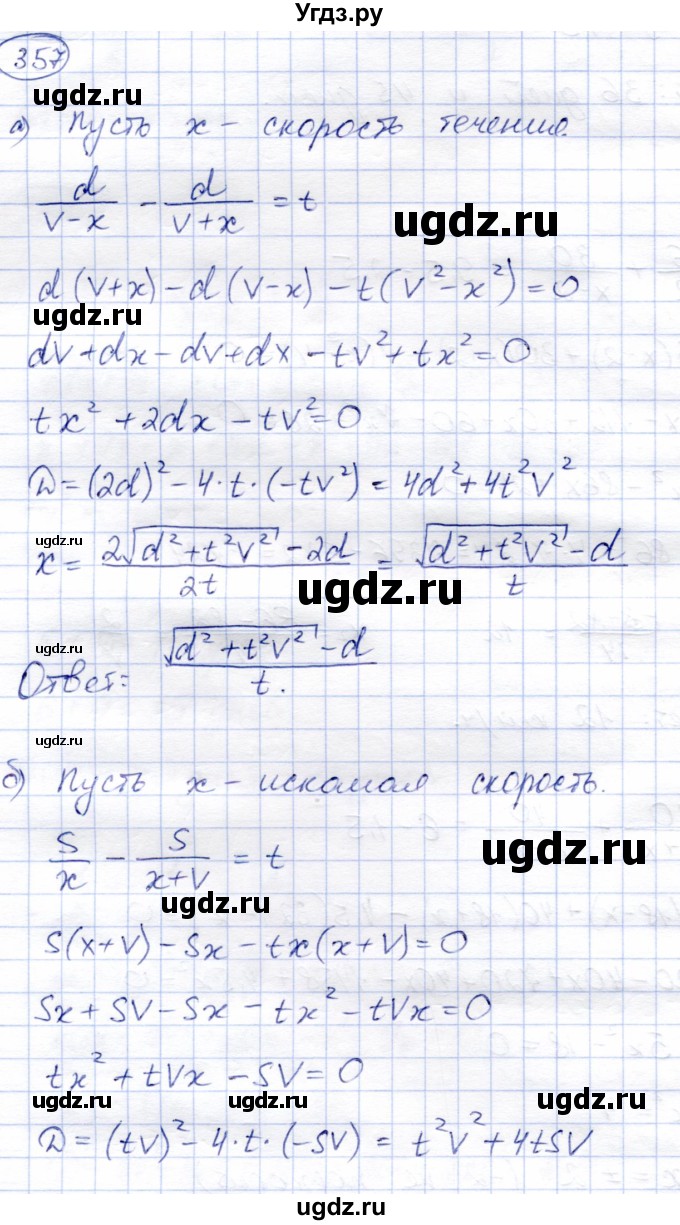 Угдз.ру
357
ugdz.ru
а) Пусть x – скорость течения.
d/(v-x) - d/(v+x) = t
ugdz.ru
d(v+x) - d(v-x) - t(v²-x²) = 0
ugdz.ru
dv+dx-dv+dx-tv²+tx²=0
tx²+2dx-tv²=0
D=(2d)²-4·t·(-tv²)=4d²+4t²v²
ugdz.ru
x = (2√(d²+t²v²) - 2d)/2t = (√(d²+t²v²) - d)/t
ugdz.ru
ugdz.ru
Ответ: (√(d²+t²v²) - d)/t.
ugdz.ru
б) Пусть x – искомая скорость.
S/x - S/(x+v) = t
ugdz.ru
ugdz.ru
S(x+v)-Sx-tx(x+v)=0
Sx+Sv-Sx-tx²-tvx=0
tx²+tvx-Sv=0
ugdz.ru ugdz.ru ugdz.ru
D=(tv)²-4·t·(-Sv)= t²v²+4tSv
ugdz.ru